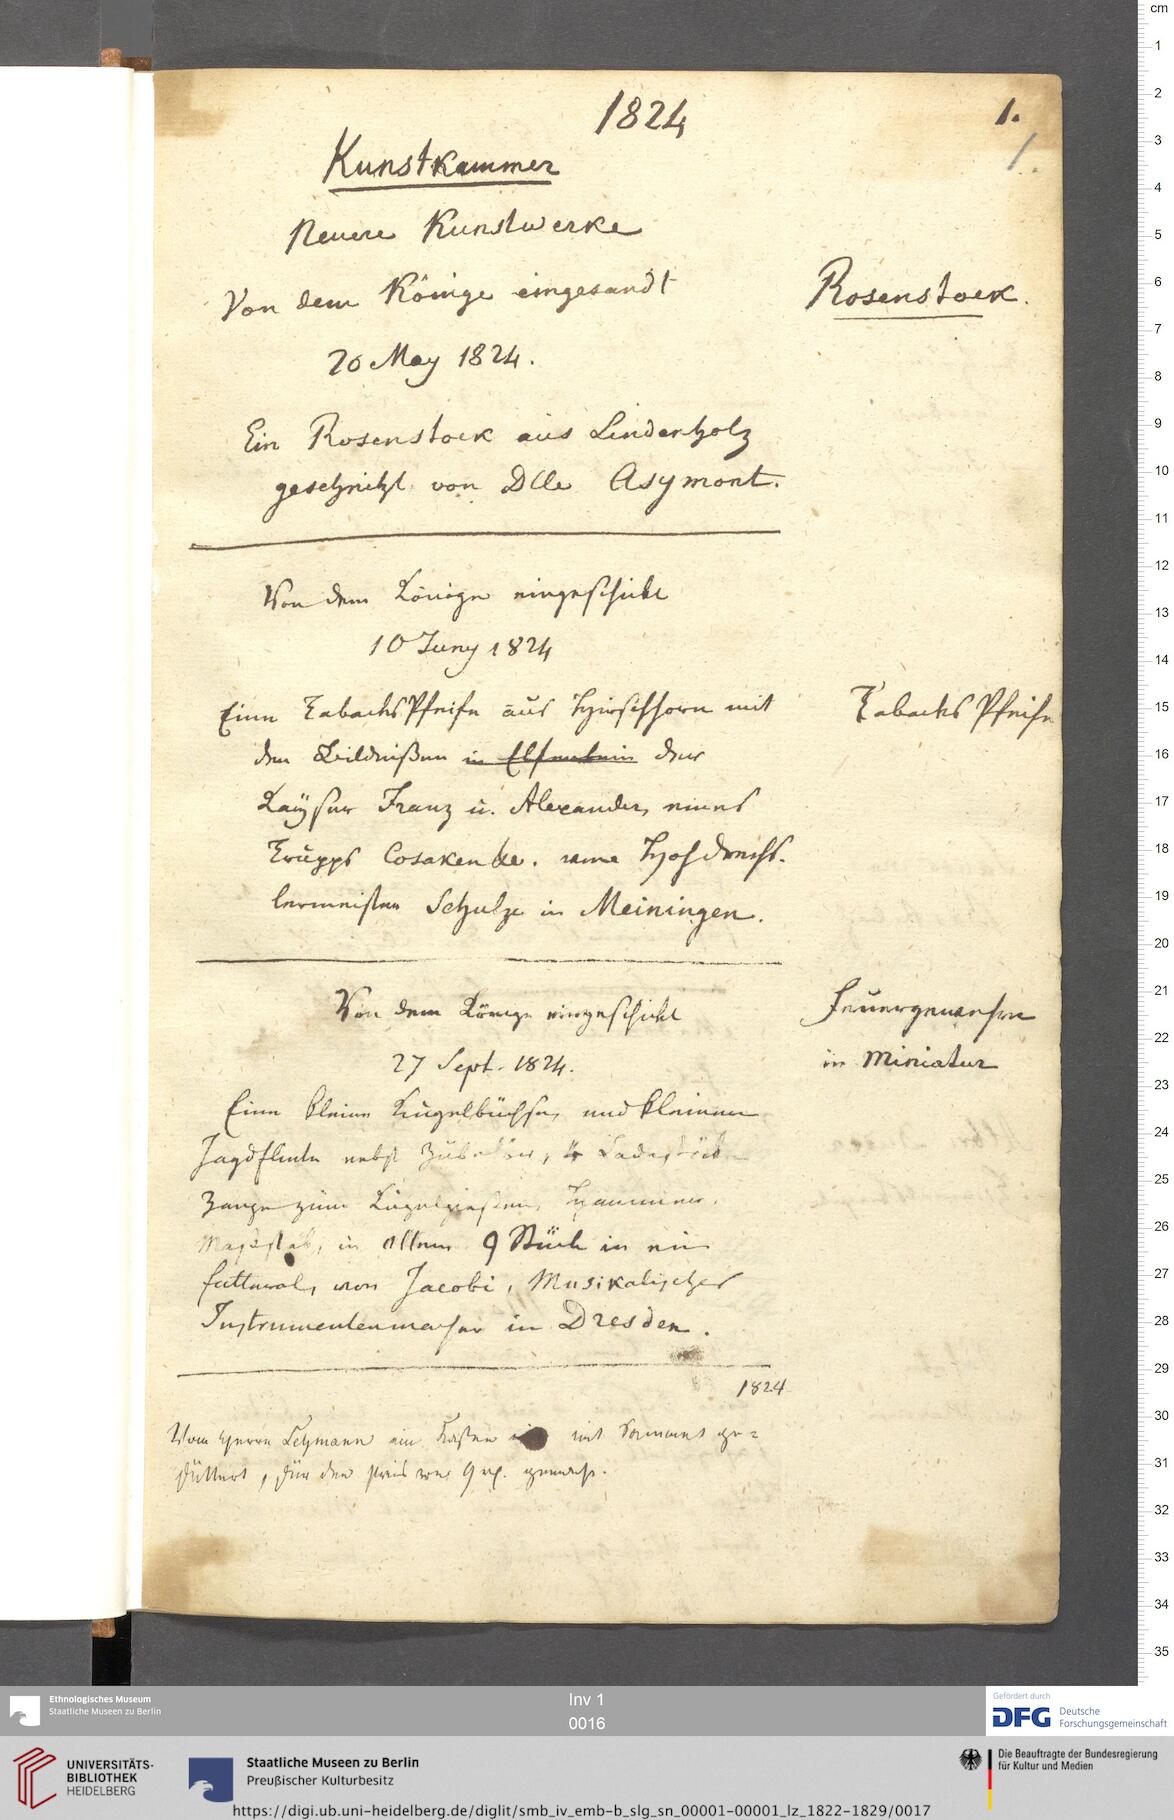 1824
1.
1.
Kunstkammer
Neuere Kunstwerke
Von dem Könige eingesandt
Rosenstock.
20 May 1824.
Ein Rosenstock aus Lindenholz
geschnitzt von Dlle Asymont.
Von dem Könige eingeschickt
10 Juny 1824
Eine Tabacks Pfeife aus Hirschhorn mit
Tabacks Pfeife
den Bildnißen in Elfenbein der
Kayser Franz u. Alexander, eines
Trupps Cosaken Hofdrechs-
lermeister Schulze in Meiningen.
Von dem Könige eingeschickt
Feuergewehre
27 Sept. 1824.
in Miniatur
Eine kleine Kugelbüchse, und kleinen
Jagdflinte nebst Zubehör, 4 Ladestöcke
Zange zum Kugelgießen, Hammer,
Maßstab, in Allem 9 Stück in ein
futteral, von Jacobi, Musikalischer
Instrumentenmacher in Dresden.
1824
Vom Herrn Lehmann ein Kasten mit Sammet ge=
füttert, für den Preis von 9 gemacht.
cm
1
2
3
4
5
6
7
8
9
10
11
12
13
14
15
16
17
18
19
20
21
22
23
24
25
26
27
28
29
30
31
32
33
34
35
Ethnologisches Museum
Staatliche Museen zu Berlin
Inv 1
0016
Gefördert durch
DFG Deutsche
Forschungsgemeinschaft
UNIVERSITÄTS-
BIBLIOTHEK
HEIDELBERG
Staatliche Museen zu Berlin
Preußischer Kulturbesitz
Die Beauftragte der Bundesregierung
für Kultur und Medien
https://digi.ub.uni-heidelberg.de/diglit/smb_iv_emb-b_slg_sn_00001-00001_lz_1822-1829/0017